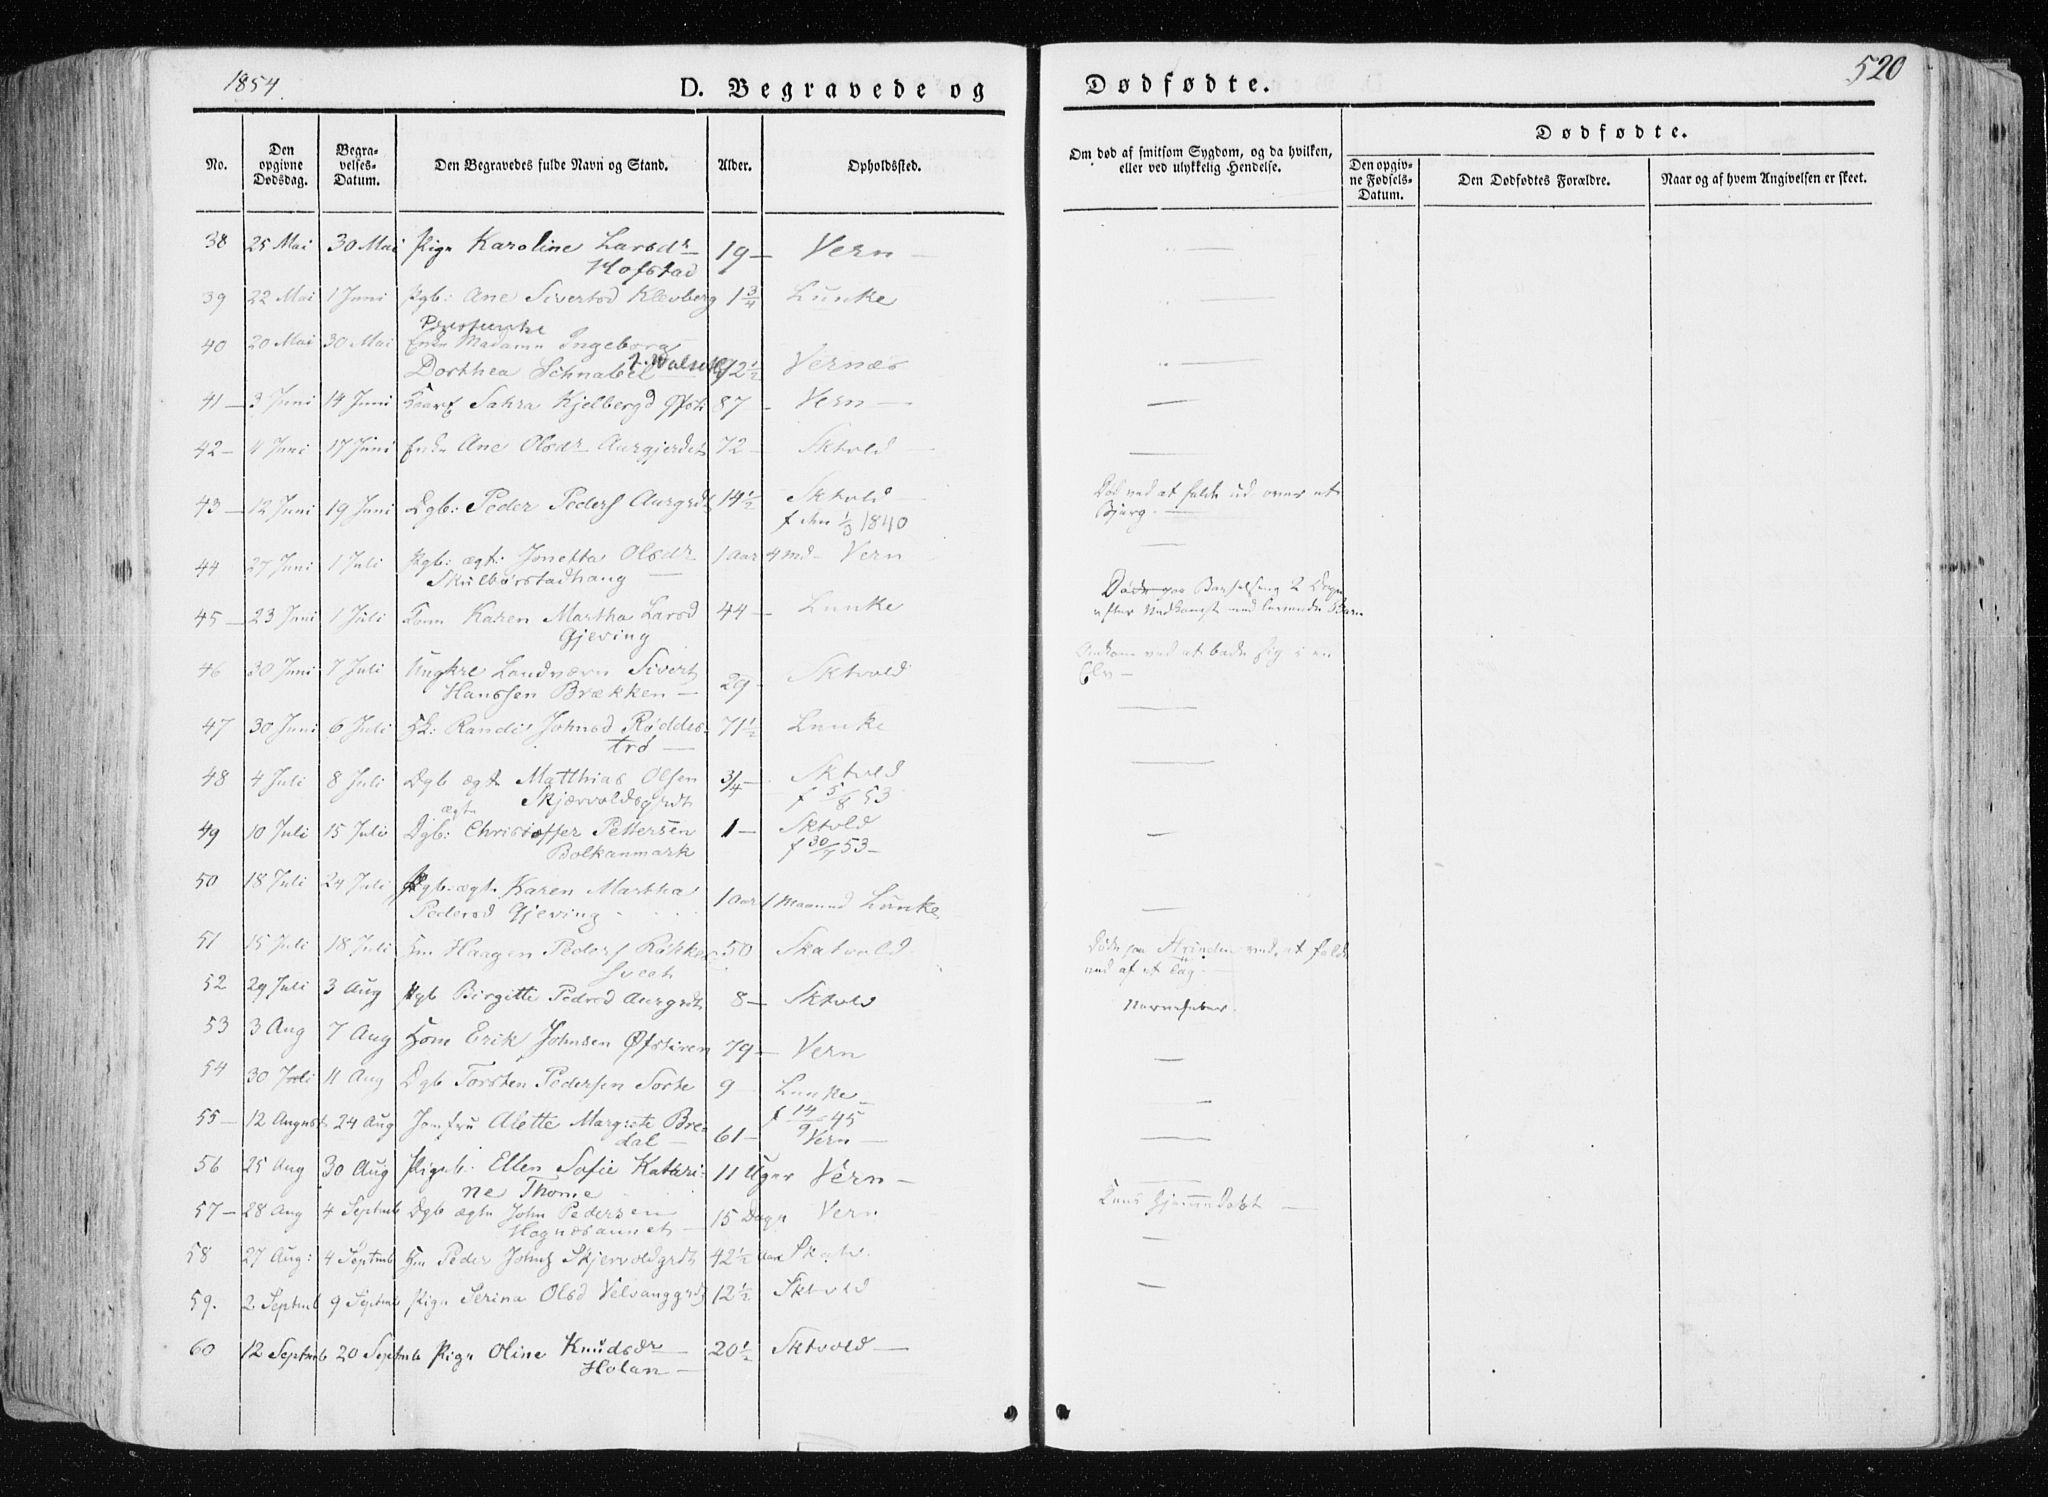 1854.
D. Begravede og
Dødfødte.
520
No.
Den opgivne Dødsdag.
Begravelses-Datum.
Den Begravedes fulde Navn og Stand.
Alder.
Opholdssted.
Om død af smitsom Sygdom, og da hvilken, eller ved ulykkelig Hendelse.
Dødfødte.
Den opgivne Fødsels-Datum.
Den Dødfødtes Forældre.
Naar og af hvem Angivelsen er skeet.
38 25 Mai 30 Mai Pige Karoline Larsdr 19 — Vern —
Hofstad
39 22 Mai 1 Juni Pgb: Ane Sivertsd Klevberg 1 3/4 Lunke
40 20 Mai 30 Mai Enke Madame Ingeborg
Dorthea Schnabel 72 1/2 Vernæs
41 — 3 Juni 14 Juni Sahra Kjelbergd 87 — Vern —
42 — 4 Juni 17 Juni Enke Ane Olsdr Aurgjerdet 72 — Sktvold —
43 — 12 Juni 19 Juni Dgb: Peder Peders Aurgrdt 14 1/2 Sktvold
f den 1/3 1840
Død ved at falde ud over et
Bjerg. —
44 27 Juni 1 Juli Pgb: ægt: Jonetta Olsdr 1 Aar 4 md — Vern
Skulbørstadhaug —
45 — 23 Juni 1 Juli Kone Karen Martha Larsd 44 — Lunke
Gjeving
Døde paa Barselseng 2 Dage
efter Nedkomst med levende Barn
46 30 Juni 7 Juli Ungkrl Landværn Sivert 29 — Sktvold
Hanssen Brækken —
Omkom ved at bade sig i en
Elv —
47 30 Juni 6 Juli Randi Johnsd Røddes- 71 1/2 Lunke
trø —
48 4 Juli 8 Juli Dgb ægt Matthias Olsen 3/4 — Sktvold
Skjærvoldsgrdt f 5/8 53
49 10 Juli 15 Juli Dgb: ægt Christoffer Pettersen 1 — Sktvold
Bolkanmark f 30/7 53 —
50 18 Juli 24 Juli Pgb: ægt Karen Martha
Pedersd Gjeving 1 Aar 1 Maaned Lunke
51 15 Juli 18 Juli Haagen Peders Røkke 50 Skatvold
Døde paa Strinden ved at falde
ned af et Tag —
52 29 Juli 3 Aug Pgb Birgitte Pedrsd Aurgrdt 8 — Sktvold
Nervefeber.
53 3 Aug 7 Aug Erik Johnsen Øfstiren 79 — Vern
54 30 Juli 11 Aug Dgb Torsten Pedersen Sorte 9 Lunke —
f 14/9 45
55 — 12 August 24 Aug Jomfru Alette Margrete Bre-
dal — 61 — Vern —
56 25 Aug 30 Aug Pigeb. Ellen Sofie Kathri- 11 Uger Vern —
ne Thome
57 — 28 Aug 4 Septmb Dgb ægte John Pedersen 15 Dage Vern
Hognæsaunet —
58 27 Aug: 4 Septmb Peder Johns Skjervoldgrdt 42 1/2 Aar Skatv.
59. 2 Septmb 9 Septmb Pige Serina Olsd Velvanggrdt 12 1/2 Sktvold
60 12 Septmb 20 Septmb Pige Oline Knudsdr 20 1/2 Sktvold —
Holan —